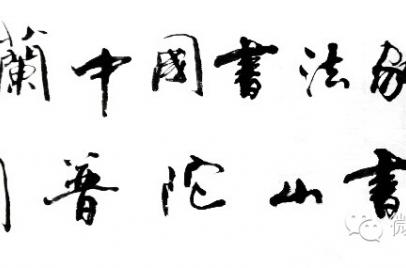 蘭中國書法家
普陀山書
微